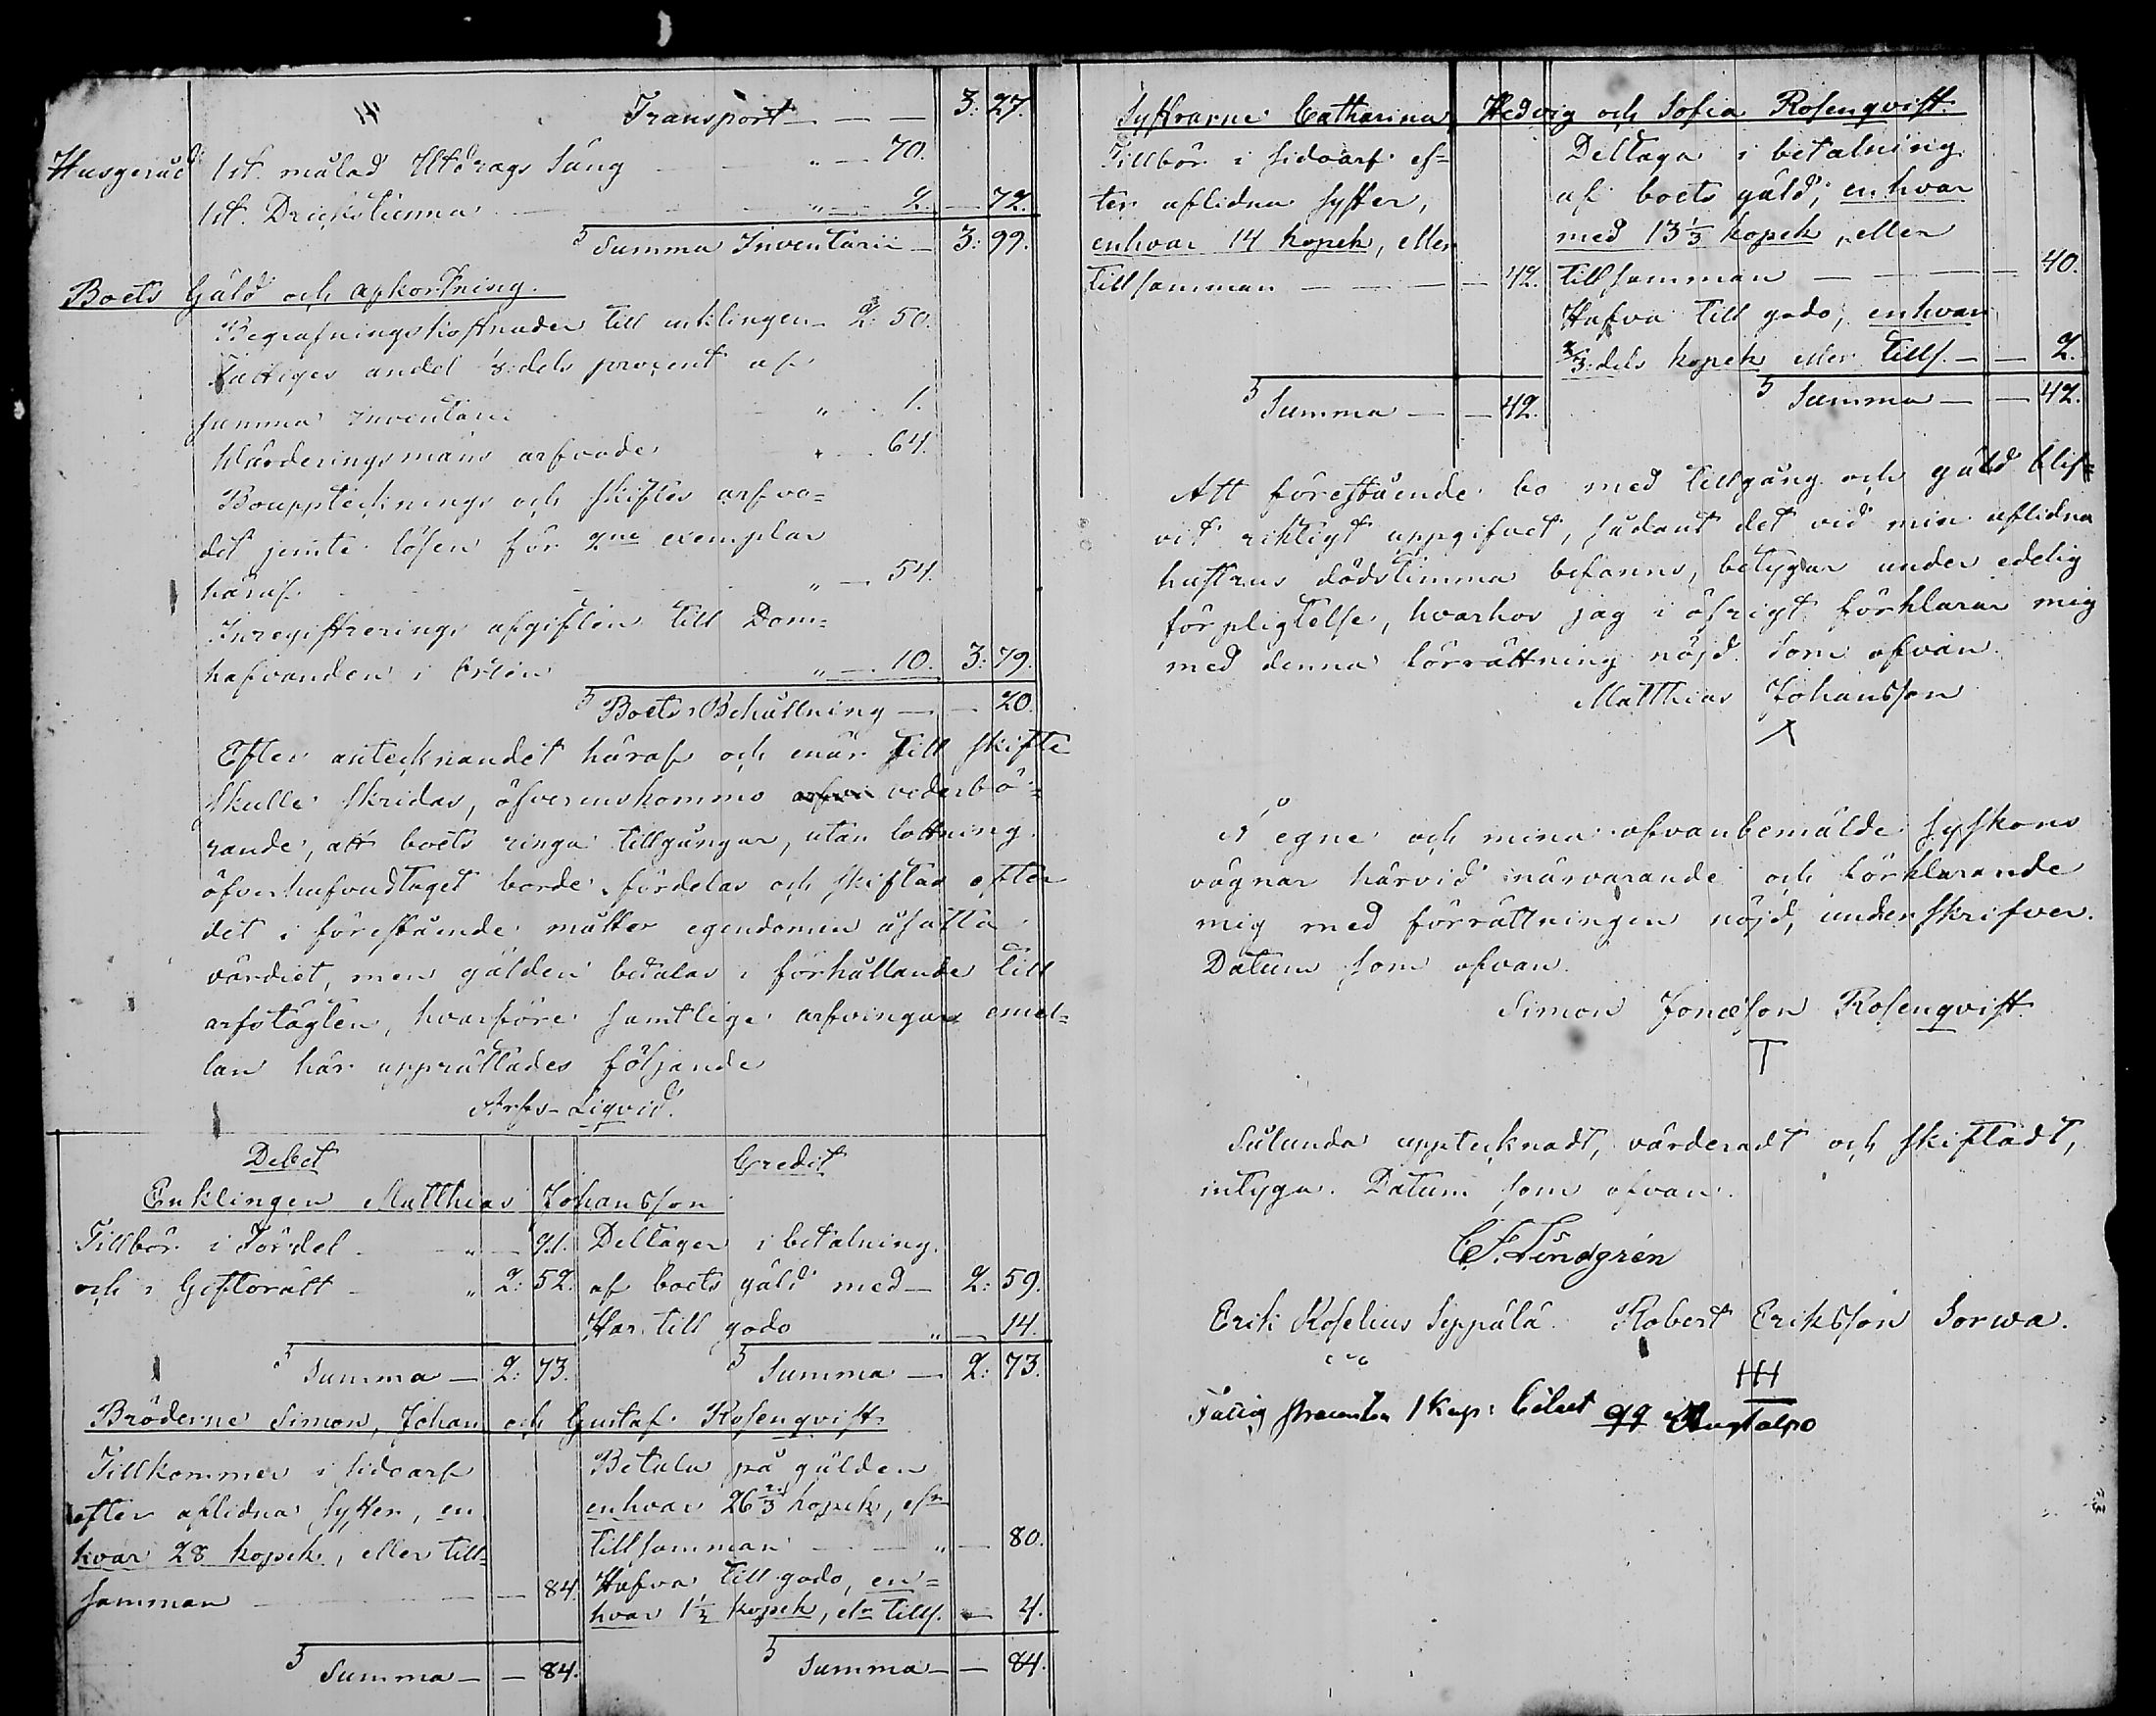 Transport — — 3: 27.
Husgeråd 1 st. målad Utdrags Säng " — 70.
1 st. Drickstunna " — 2. — 72.
Summa Inventarii — 3: 99.
Boets Gäld och afkortning.
Begrafningskostnader till enklingen — 2: 50.
Fattiges andel 1/8:dels procent af
summa inventarii " — 1.
Wärderingsmäns arfvode " — 64.
Bouppteknings och skiftes arfvo=
det jemte lösen för 2ne exemplar
häraf " — 54.
Inregistrerings afgiften till Dom=
hafvanden i Orten " — 10. 3: 79.
Boets Behållning — — 20.
Efter antecknandet häraf och enär till skifte
skulle skridas, öfverenskommo vederbö=
rande, att boets ringa tillgångar, utan lottning
öfverhufvudtaget borde fördelas och skiftas efter
det i förestående måtter egendomen åsatta
värdiet, men gälden betalas i förhållande till
arfstägten, hvarföre samtlige arfvingar emel=
lan här upprättades följande
Arfs-Liqvid.
Debet Credit
Enklingen Matthias Johansson
Tillbör i Fördel " — 21. Deltager i betalning
och i Giftorätt " 2: 52. af boets gäld med — 2: 59.
Har till godo " — 14.
Summa — 2: 73. Summa — 2: 73.
Bröderne Simon, Johan och Gustaf Rosenqvist
Tillkommer i sidoarf Betala på gälden
efter aflidna syster, en enhvar 26 2/3 kopek, eln
hvar 28 kopek, eller till= tillsamman — " — 80.
samman — 84. Hafva till godo, en=
hvar 1 1/3 kopek, eln tills. — 4.
Summa — — 84. Summa — — 84.
Systrarne Catharina, Hedvig och Sofia Rosenqvist.
Tillbör i sidoarf ef= Deltaga i betalning
ter aflidna syster, af boets gäld, enhvar
enhvar 14 kopek, eller med 13 1/3 kopek, eller
tillsamman — — — 42. tillsamman — — — 40.
Hafva till godo, enhvar
2/3:dels kopek eller tills. — — 2.
Summa — — 42. Summa — — 42.
Att förestående bo med tillgång och gäld blif=
vit riktigt uppgifvet, sådant det vid min aflidna
hustrus dödstimma befanns, betygar under edelig
förpligtelse, hvarhos jag i öfrigt förklarar mig
med denna förrättning nöjd. Som ofvan.
Matthias Johansson
Å egne och mina ofvanbemälde syskons
vägnar härvid närvarande och förklarande
mig med förrättningen nöjd, underskrifver.
Datum som ofvan.
Simon Jonæsson Rosenqvist.
Sålunda uppteknadt, värderadt och skiftadt,
intyga. Datum som ofvan.
C. F. Lindgrén
Erik Roselius Seppälä. Robert Eriksson Sorwa.
1 Kop: